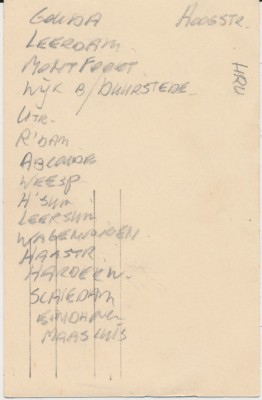 GOUDA HOOGSTR.
LEERDAM
MONTFOORT.
WIJK B/DUURSTEDE.
UTR.
R'DAM
ABCOUDE
WEESP.
H'SUM
LEERSUM
WAGENINGEN
HAASTR.
HARDERW.
SCHIEDAM
MAASLUIS
HRV